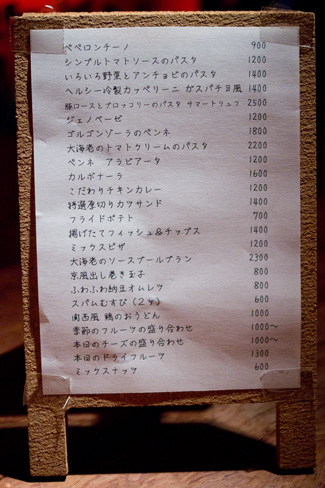 ペペロンチーノ 900
シンプルトマトソースのパスタ 1200
いろいろ野菜とアンチョビのパスタ 1400
ヘルシー冷製カッペリーニ ガスパチョ風 1400
豚ロースとブロッコリーのパスタ サマートリュフ 2500
ジェノベーゼ 1200
ゴルゴンゾーラのペンネ 1800
大海老のトマトクリームのパスタ 2200
ペンネ アラビアータ 1200
カルボナーラ 1600
こだわりチキンカレー 1200
特選厚切りカツサンド 1400
フライドポテト 700
揚げたてフィッシュ&チップス 1400
ミックスピザ 1200
大海老のソースプールブラン 2300
京風出し巻き玉子 800
ふわふわ納豆オムレツ 800
スパムむすび(2ケ) 600
関西風 鶏のおうどん 1000
季節のフルーツの盛り合わせ 1000〜
本日のチーズの盛り合わせ 1000〜
本日のドライフルーツ 1300
ミックスナッツ 600